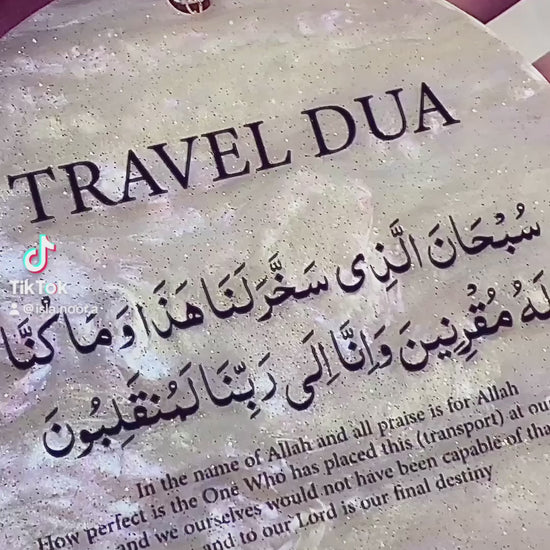 TRAVEL DUA
سُبْحَانَ الَّذِي سَخَّرَ لَنَا هَذَا وَ مَا كُنَّا
لَهُ مُقْرِنِينَ وَإِنَّا إِلَى رَبِّنَا لَمُنقَلِبُونَ
In the name of Allah and all praise is for Allah
How perfect is the One Who has placed this (transport) at our
and we ourselves would not have been capable of that
and to our Lord is our final destiny
TikTok
@islainoora